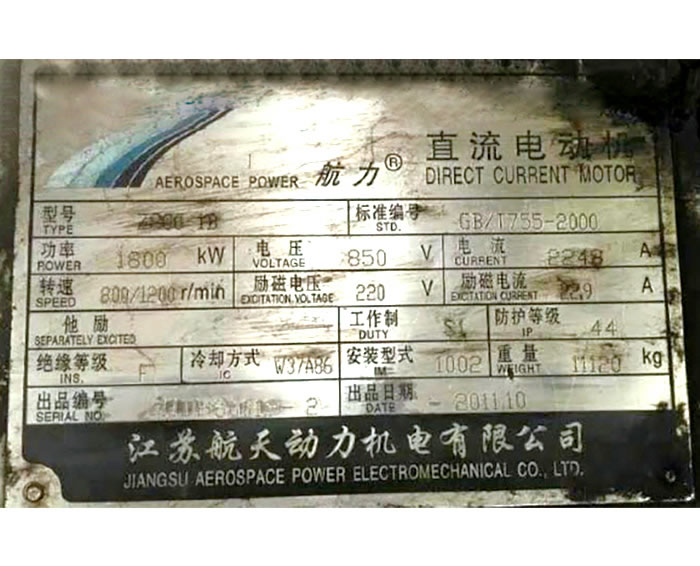 直流电动机
AEROSPACE POWER 航力® DIRECT CURRENT MOTOR
型号 标准编号 GB/T755-2000
TYPE STD.
功率 1800 kW 电压 850 V 电流 2248 A
POWER VOLTAGE CURRENT
转速 800/1200 r/min 励磁电压 220 V 励磁电流 A
SPEED EXCITATION VOLTAGE EXCITATION CURRENT
他励 工作制 S1 防护等级 44
SEPARATELY EXCITED DUTY IP
绝缘等级 F 冷却方式 W37A86 安装型式 1002 重量 11120 kg
INS. IC IM WEIGHT
出品编号 - 2 出品日期 2011.10
SERIAL NO. DATE
江苏航天动力机电有限公司
JIANGSU AEROSPACE POWER ELECTROMECHANICAL CO., LTD.